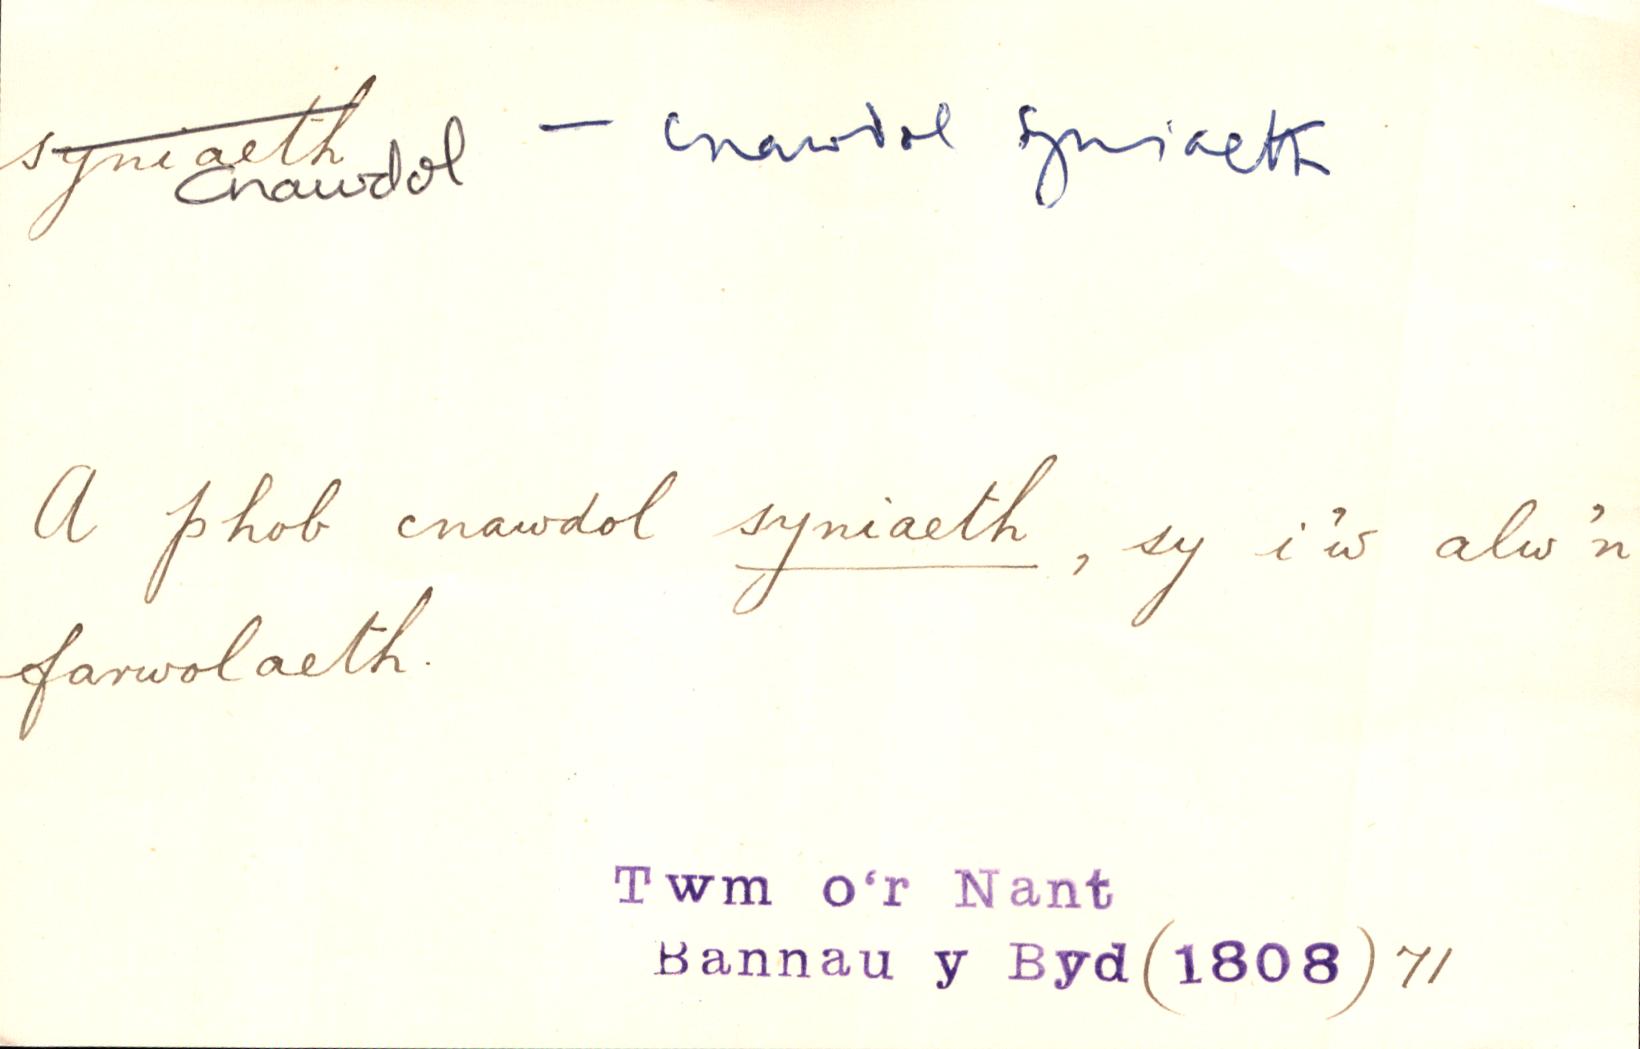 syniaeth
cnawdol — cnawdol syniaeth
A phob cnawdol syniaeth, sy i'w alw'n
farwolaeth.
Twm o'r Nant
Bannau y Byd (1808) 71